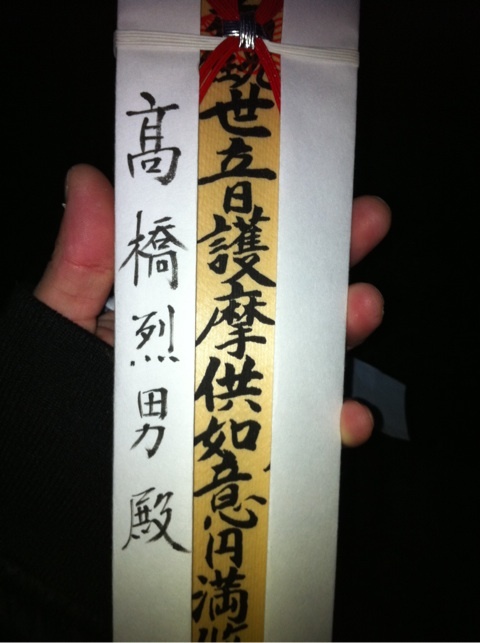 世音護摩供如意円満
髙橋烈男殿